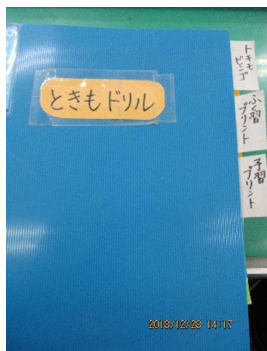 ときもドリル
トキモ
ビンゴ
ふく習
プリント
予習
プリント
2013/12/23 14:17